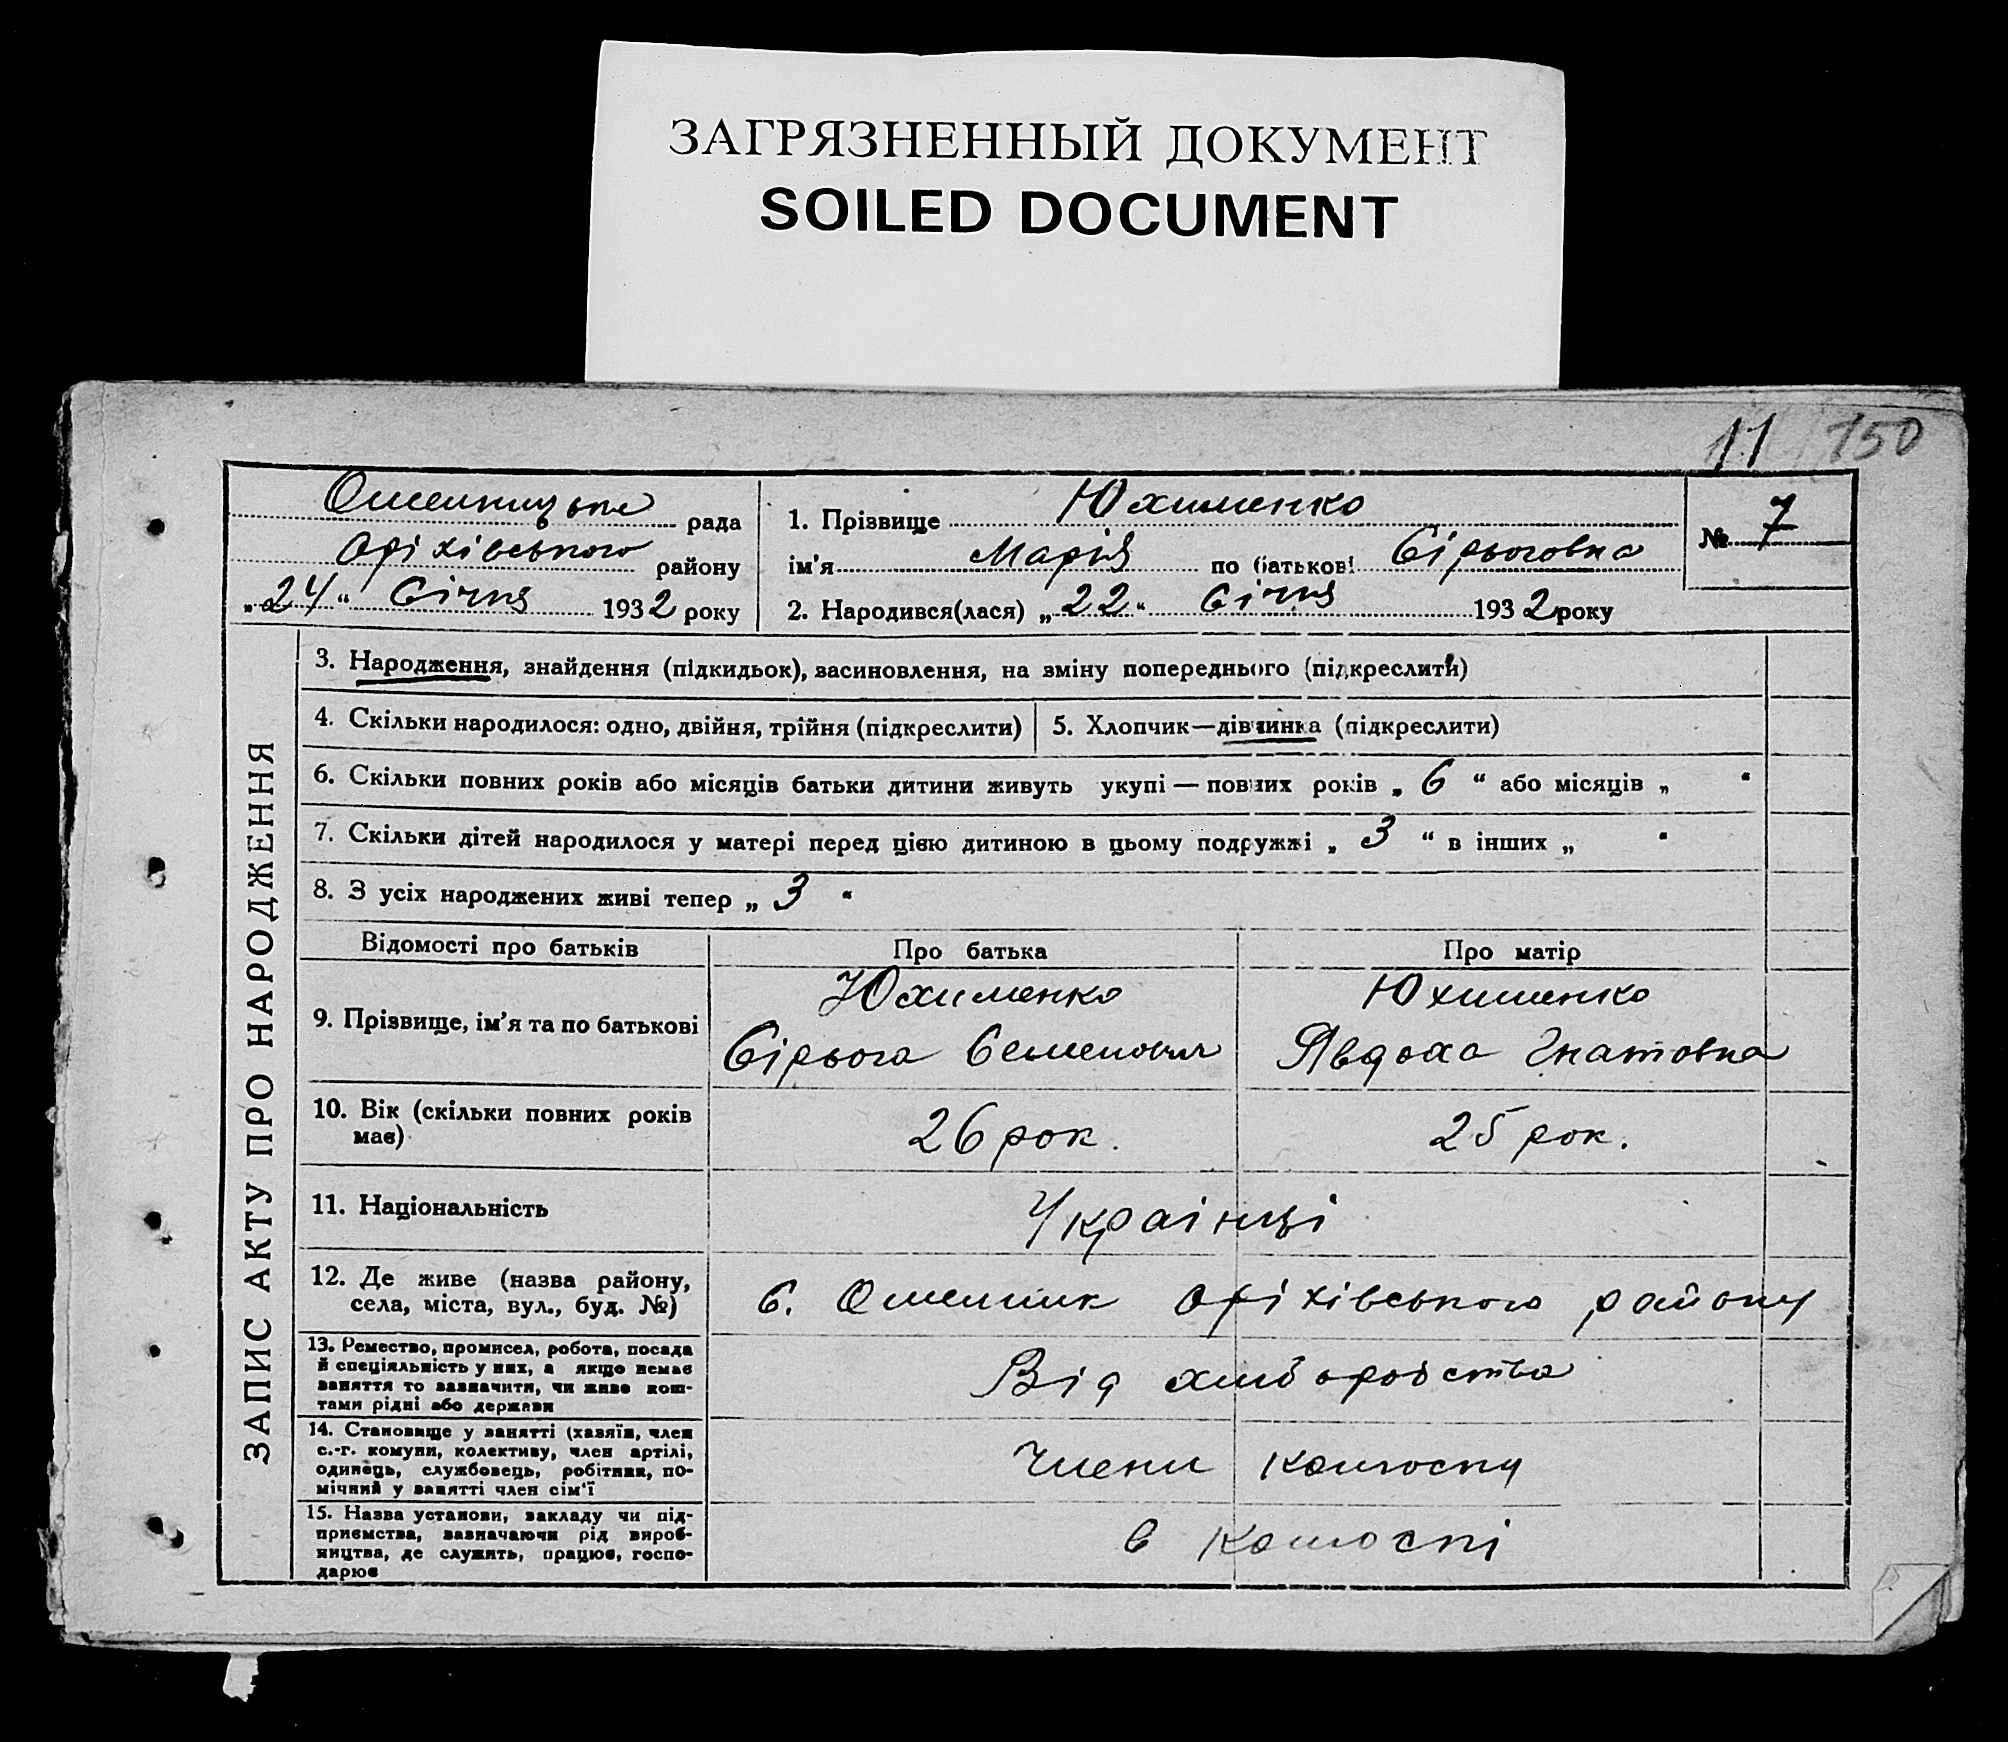 ЗАГРЯЗНЕННЫЙ ДОКУМЕНТ
SOILED DOCUMENT
11 150
рада
Оріхівського району
„24“ Січня 1932 року
1. Прізвище Юхименко
ім'я Марія по батькові Сірьоговна
2. Народився(лася) „22“ Січня 1932 року
№ 7
ЗАПИС АКТУ ПРО НАРОДЖЕННЯ
3. Народження, знайдення (підкидьок), засиновлення, на зміну попереднього (підкреслити)
4. Скільки народилося: одно, двійня, трійня (підкреслити)
5. Хлопчик—дівчинка (підкреслити)
6. Скільки повних років або місяців батьки дитини живуть укупі — повних років „ 6 “ або місяців „ “
7. Скільки дітей народилося у матері перед цією дитиною в цьому подружжі „ 3 “ в інших „ “
8. З усіх народжених живі тепер „ 3 “
Відомості про батьків
Про батька
Про матір
9. Прізвище, ім'я та по батькові
Юхименко
Сірьога Семенович
Юхименко
Явдоха Гнатовна
10. Вік (скільки повних років
має)
26 рок.
25 рок.
11. Національність
Українці
12. Де живе (назва району,
села, міста, вул., буд. №)
с. Омельник Оріхівського району
13. Ремество, промисел, робота, посада
й спеціяльність у них, а якщо немає
заняття то зазначити, чи живе кош-
тами рідні або держави
Від хліборобства
14. Становище у занятті (хазяїн, член
с.-г. комуни, колективу, член артілі,
одинець, службовець, робітник, по-
мічний у занятті член сім'ї
Члени колгоспу
15. Назва установи, закладу чи під-
приємства, зазначаючи рід вироб-
ництва, де служить, працює, госпо-
дарює
в колгоспі